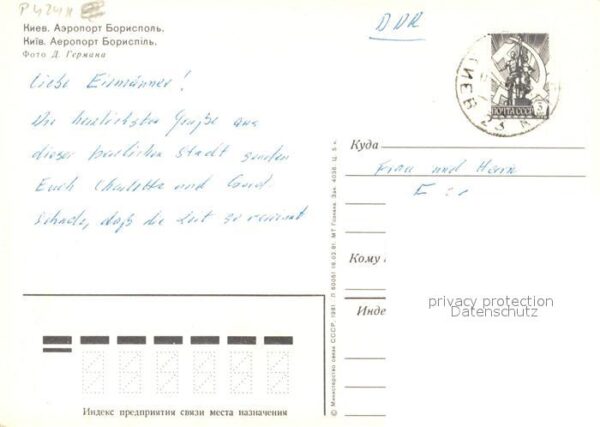 P424N
DDR
Киев. Аэропорт Борисполь.
Київ. Аеропорт Бориспіль.
Фото Д. Германа
Liebe Eismänner!
Die herzlichsten Grüße aus
dieser herrlichen Stadt senden
Euch Charlotte und Gerd
Schade, daß die Zeit so rennt
ПОЧТА СССР
КИЕВ 23
Куда
Frau und Herrn
Кому
Инде
privacy protection
Datenschutz
© Министерство связи СССР, 1981
Индекс предприятия связи места назначения